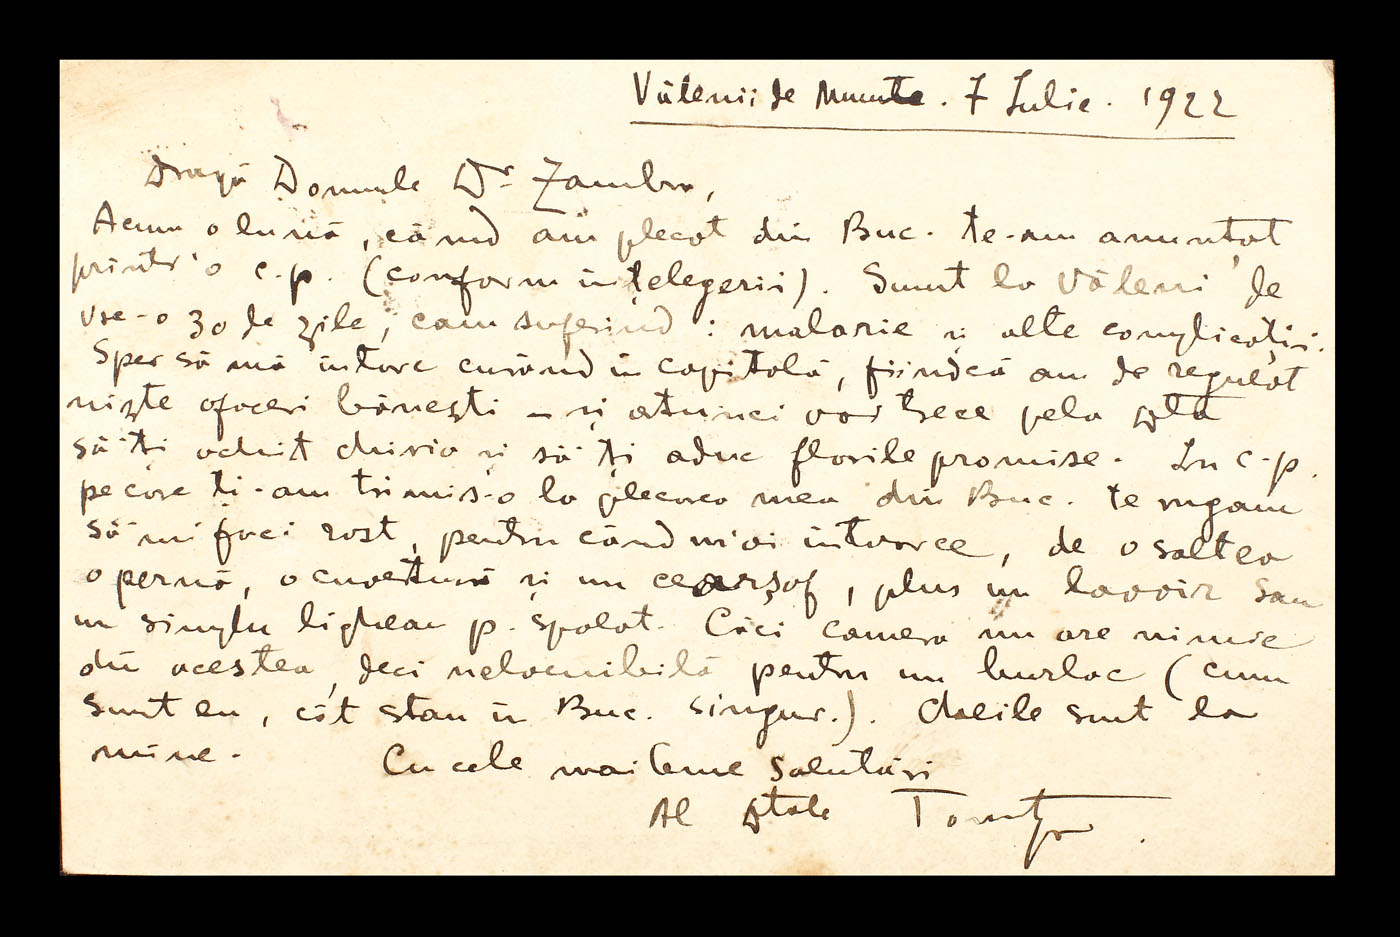 Vălenii de Munte. 7 Iulie. 1922
Dragă Domnule Dr Zambra,
Acum o lună, când am plecat din Buc. te-am anunțat
printr'o c.p. (conform înțelegerii). Sunt la Văleni de
vre-o 30 de zile, cam suferind : malarie și alte complicații.
Sper să mă întorc curând în capitală, fiindcă am de regulat
niște afaceri bănești – și atunci voi trece pela Dta
să-ți achit chiria și să-ți aduc florile promise. În c.p.
pe care ți-am trimis-o la plecarea mea din Buc. te rugam
să-mi faci rost, pentru când m'oi întoarce, de o saltea
o pernă, o cuvertură și un cearșaf, plus un lavoir sau
un simplu lighean p. spălat. Căci camera nu are nimic
din acestea, deci nelocuibilă pentru un burlac (cum
sunt eu, cât stau în Buc. singur.). Cheile sunt la
mine.
Cu cele mai bune salutări
Al Dtale